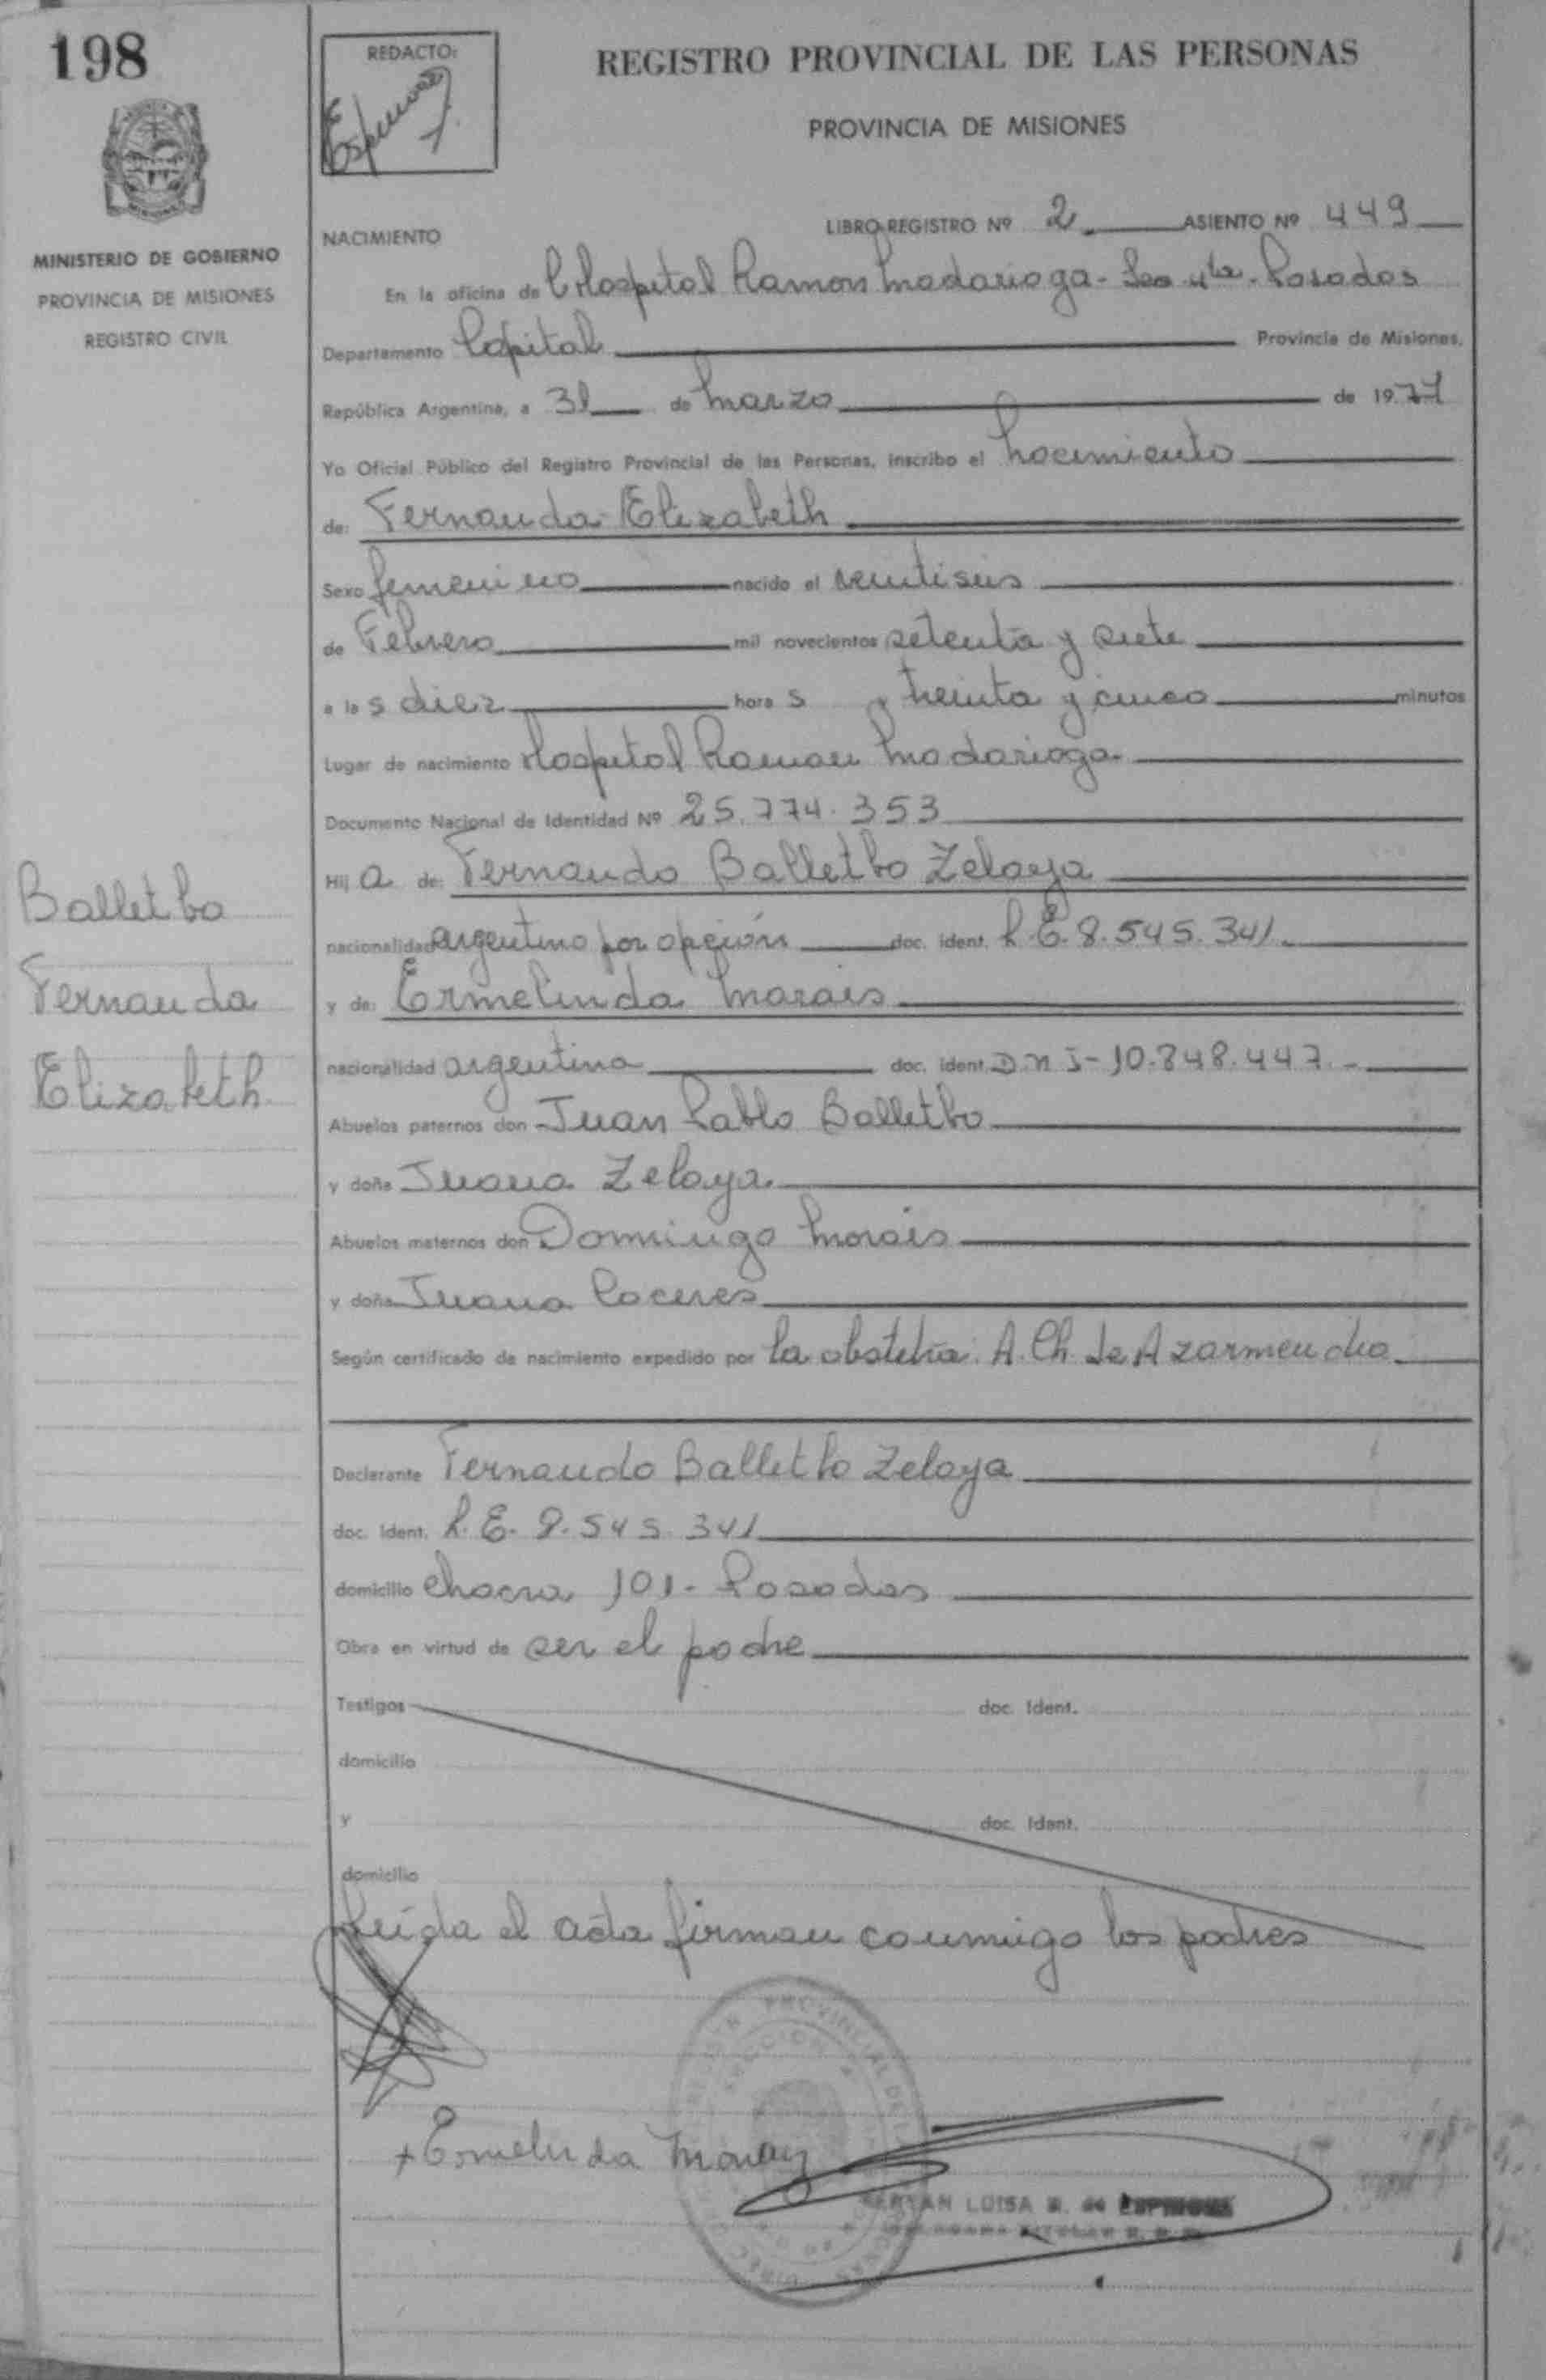 198
REDACTO:
Espinoza
REGISTRO PROVINCIAL DE LAS PERSONAS
PROVINCIA DE MISIONES
MINISTERIO DE GOBIERNO
PROVINCIA DE MISIONES
REGISTRO CIVIL
NACIMIENTO
LIBRO REGISTRO Nº 2 ASIENTO Nº 449
En la oficina de Hospital Ramon Madariaga - Sec 4ta - Posadas
Departamento Capital Provincia de Misiones,
República Argentina, a 31 de Marzo de 1977
Yo Oficial Público del Registro Provincial de las Personas, inscribo el Nacimiento
de: Fernanda Elizabeth
Sexo femenino nacido el veintiseis
de Febrero mil novecientos setenta y siete
a las diez horas y treinta y cinco minutos
Lugar de nacimiento Hospital Ramon Madariaga
Documento Nacional de Identidad Nº 25.774.353
Hija de: Fernando Balletbo Zelaya
nacionalidad argentino por opción doc. ident. L.E. 8.545.341.
y de: Ermelinda Morais
nacionalidad argentina doc. ident. D.N I- 10.848.447.-
Abuelos paternos don Juan Pablo Balletbo
y doña Juana Zelaya.
Abuelos maternos don Domingo Morais
y doña Juana Caceres
Según certificado de nacimiento expedido por la obstetra: A. Ch. de Azarmendia
Declarante Fernando Balletbo Zelaya
doc. Ident. L.E. 8.545.341
domicilio Chacra 101- Posadas
Obra en virtud de ser el padre
Testigos doc. Ident.
domicilio
y doc. Ident.
domicilio
Leída el acta firman conmigo los padres
+ Ermelinda Morais
LUISA de ESPINOZA
Balletbo
Fernanda
Elizabeth